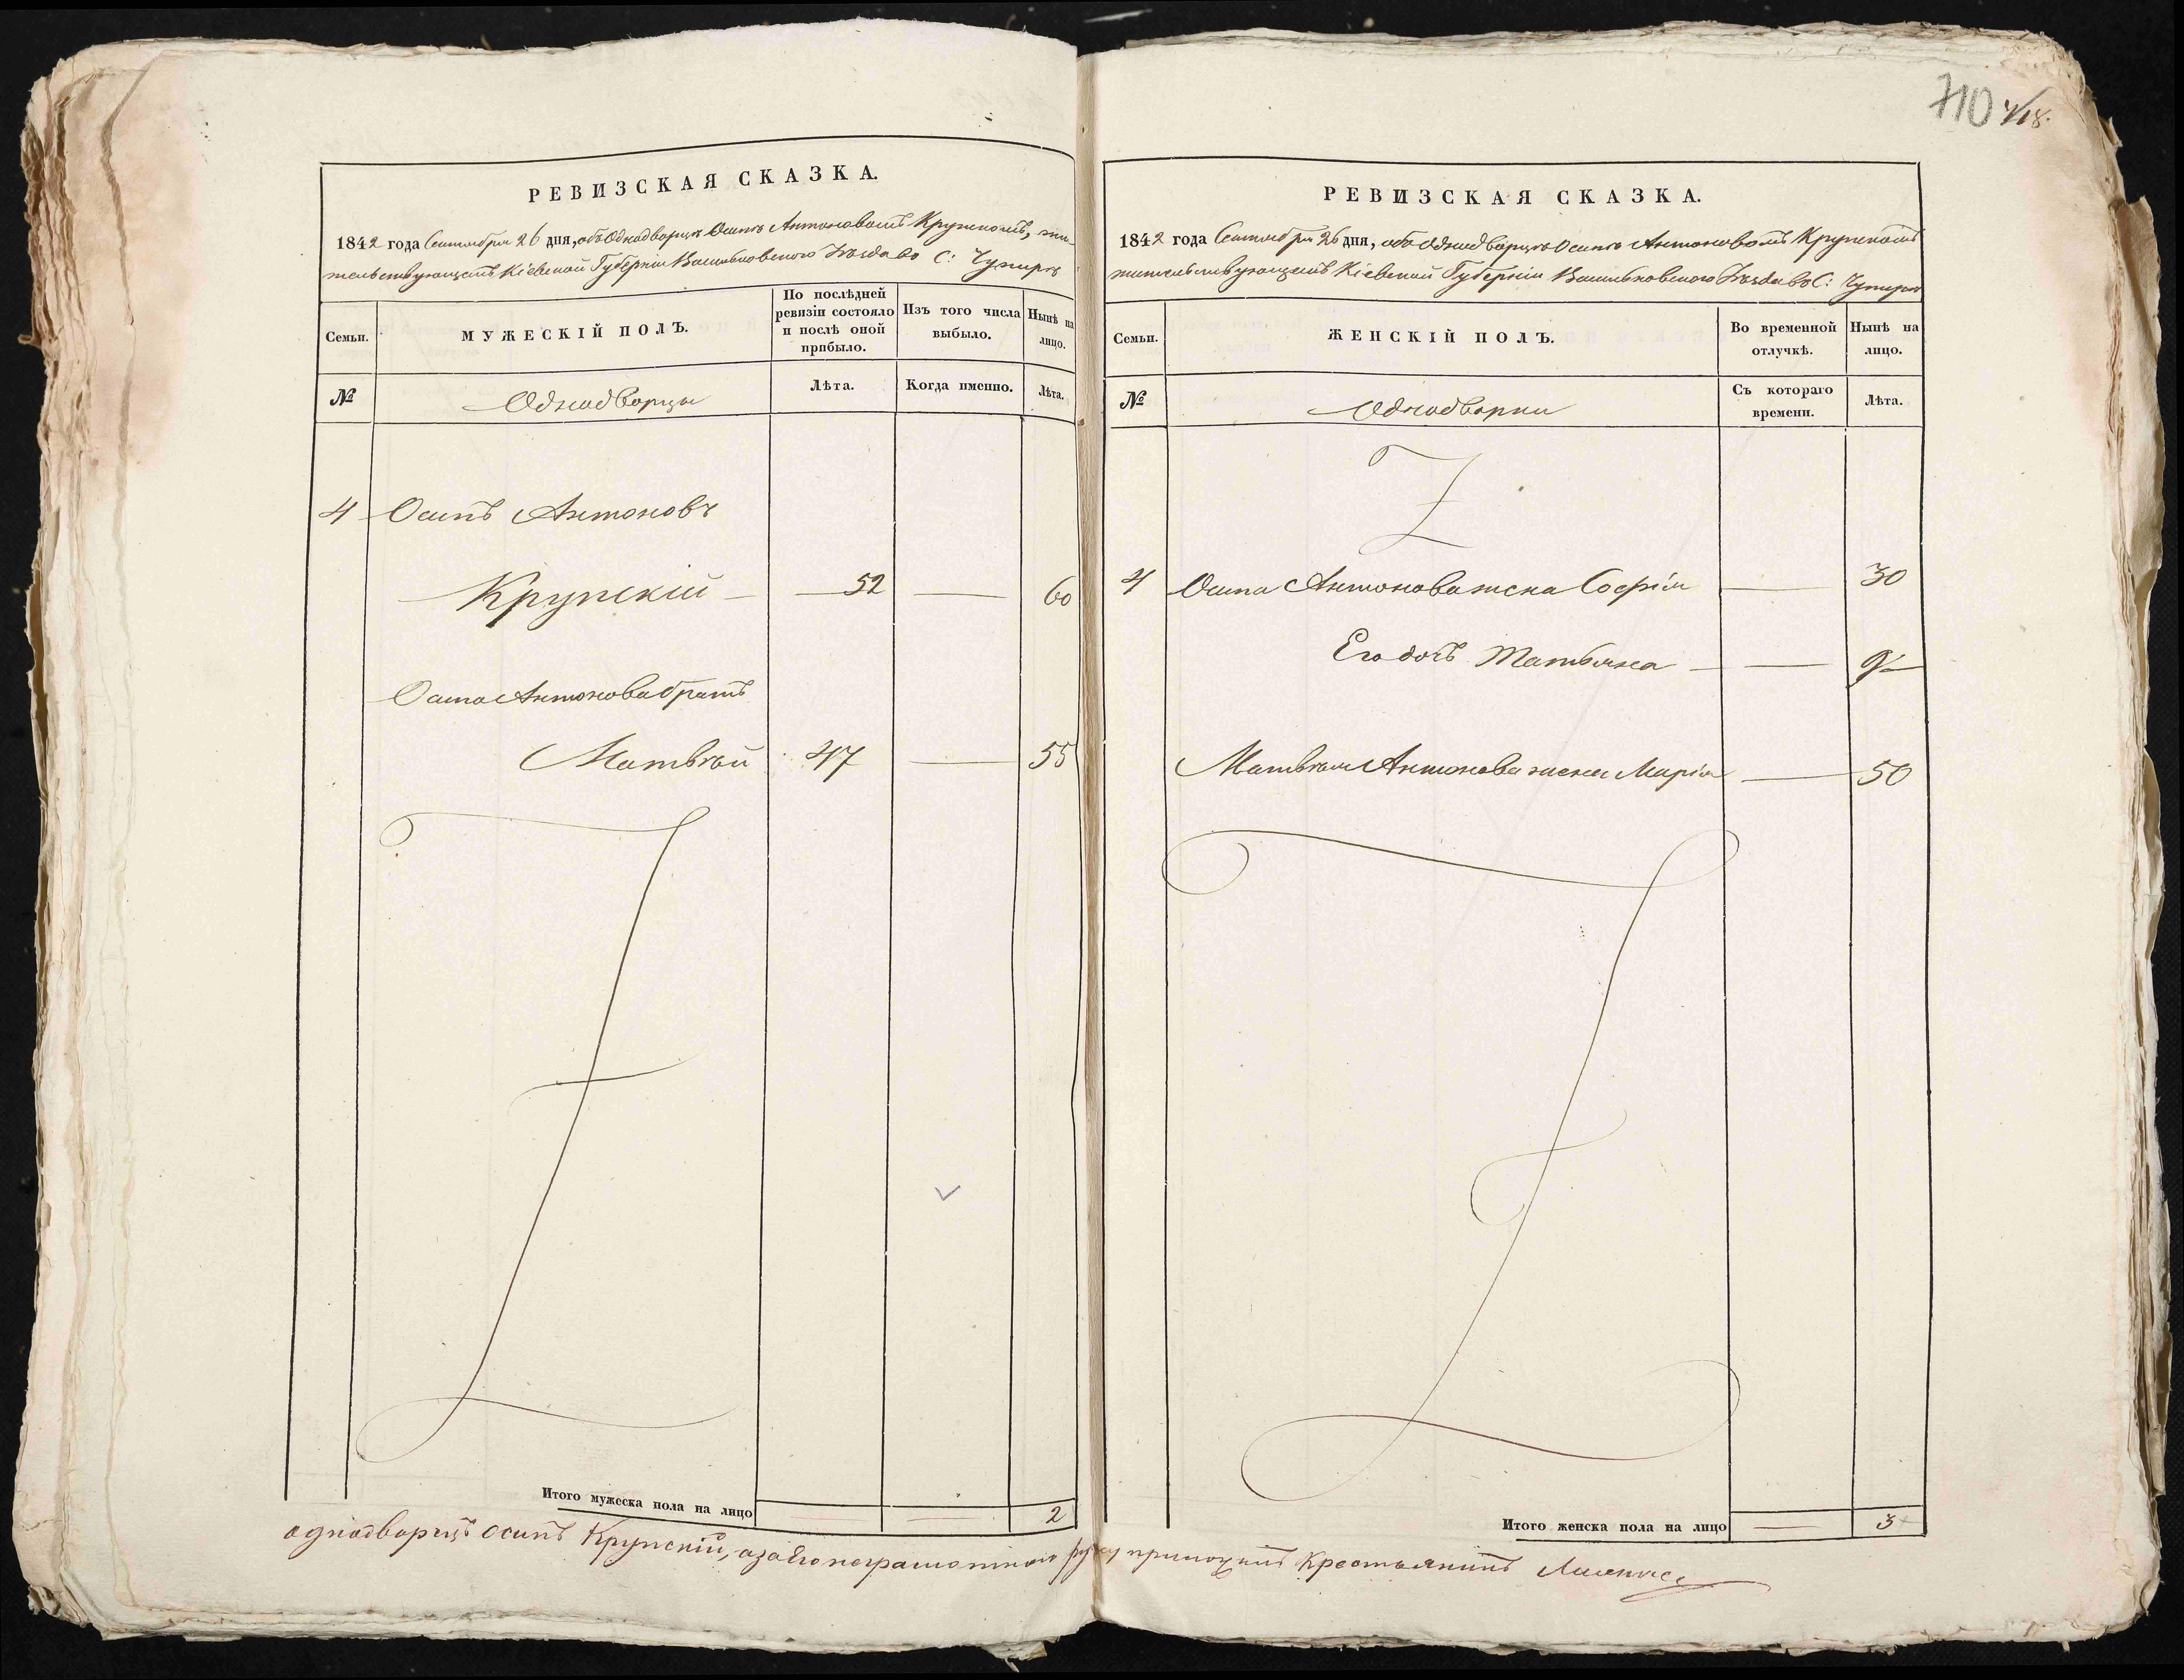 710 718.
РЕВИЗСКАЯ СКАЗКА.
1842 года Сентября 26 дня, объ Однодворцѣ Осипѣ Антоновомъ Крупскомъ, жи-
тельствующемъ Кіевской Губерніи Васильковскаго Уѣзда во С: Чупирѣ
Семьи.
МУЖЕСКІЙ ПОЛЪ.
По послѣдней ревизіи состояло и послѣ оной прибыло.
Изъ того числа выбыло.
Нынѣ на лицо.
№
Однодворцы
Лѣта.
Когда именно.
Лѣта.
4 Осипъ Антоновъ
Крупскій — 52 — 60
Осипа Антонова братъ
Матвѣй 47 — 55
Итого мужеска пола на лицо — 2
РЕВИЗСКАЯ СКАЗКА.
1842 года Сентября 26 дня, объ Однодворцѣ Осипѣ Антоновомъ Крупскомъ
жительствующемъ Кіевской Губерніи Васильковскаго Уѣзда во С: Чупирѣ
Семьи.
ЖЕНСКІЙ ПОЛЪ.
Во временной отлучкѣ.
Нынѣ на лицо.
№
Однодворки
Съ котораго времени.
Лѣта.
4 Осипа Антонова жена Софія — 30
Его дочь Татьяна — 9
Матвѣя Антонова жена Марія — 50
Итого женска пола на лицо — 3
однодворецъ Осипъ Крупскій, а за Его неграмотного руку приложилъ Крестьянинъ